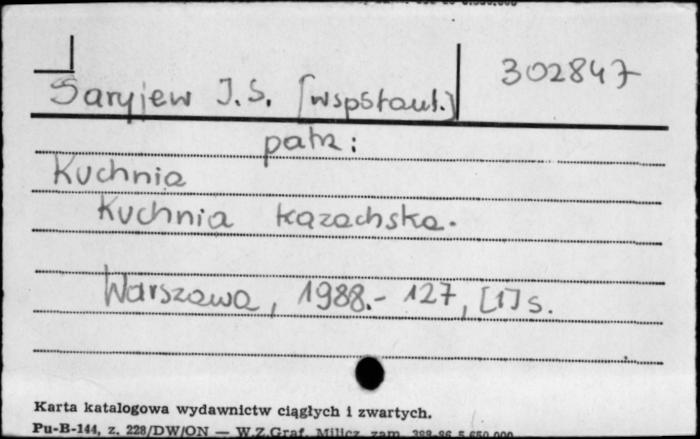 Saryjew J.S. [wspσłaut.] 302847
patrz:
Kuchnia
Kuchnia kazachska.
Warszawa, 1988.- 127, [1] s.
Karta katalogowa wydawnictw ciągłych i zwartych.
Pu-B-144, z. 228/DW/ON — W.Z.Graf. Milicz, zam.